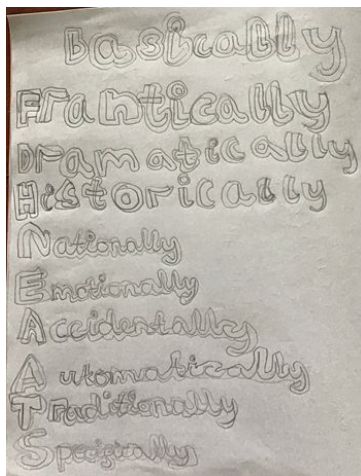 Basically
Frantically
Dramatically
Historically
Nationally
Emotionally
Accidentally
Automatically
Traditionally
Specifically